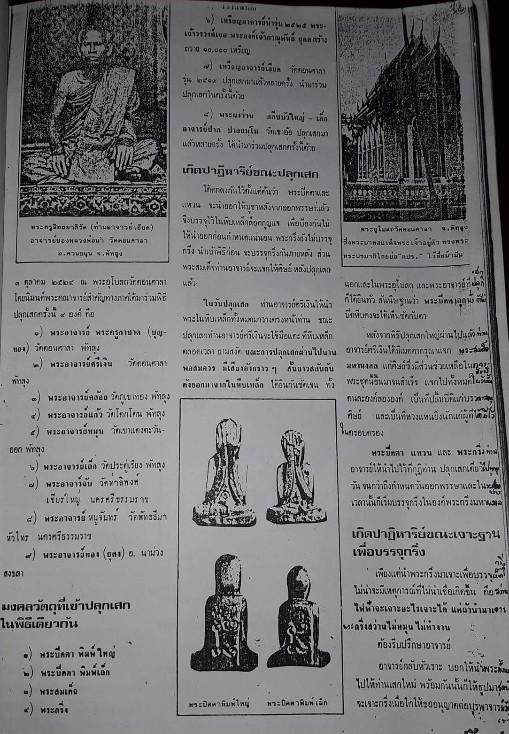 พระครูสิทธยาภิรัต (ท่านอาจารย์เอียด)
อาจารย์ของหลวงพ่อนำ วัดดอนศาลา
อ.ควนขนุน จ.พัทลุง
๓ ตุลาคม ๒๕๒๕ ณ พระอุโบสถวัดดอนศาลา
โดยนิมนต์พระคณาจารย์สำคัญทางภาคใต้มาร่วมพิธี
ปลุกเสกครั้งนี้ ๙ องค์ คือ
๑) พระอาจารย์ พระครูกาชาด (บุญ-
ทอง) วัดดอนศาลา พัทลุง
๒) พระอาจารย์ศรีเงิน วัดดอนศาลา
พัทลุง
๓) พระอาจารย์คล้อย วัดภูเขาทอง พัทลุง
๔) พระอาจารย์แก้ว วัดโคกโดน พัทลุง
๕) พระอาจารย์หมุน วัดเขาแดงตะวัน-
ออก พัทลุง
๖) พระอาจารย์เล็ก วัดประดู่เรียง พัทลุง
๗) พระอาจารย์
เชียรใหญ่ นครศรีธรรมราช
๘) พระอาจารย์หนูจันทร์ วัดพัทธสีมา
หัวไทร นครศรีธรรมราช
๙) พระอาจารย์ทอง
สงขลา
มงคลวัตถุที่เข้าปลุกเสก
ในพิธีเดียวกัน
๑) พระปิดตา พิมพ์ใหญ่
๒) พระปิดตา พิมพ์เล็ก
๓) พระสมเด็จ
๔) พระกริ่ง
๖) เหรียญอาจารย์นำรุ่น ๒๕๒๕ พระ-
เจ้าวรวงศ์เธอ พระองค์เจ้าภาณุพันธุ์ ยุคลสร้าง
ถวาย ๑๐,๐๐๐ เหรียญ
๗) เหรียญอาจารย์เอียด วัดดอนศาลา
รุ่น ๒๕๑๙ ปลุกเสกมาแล้วหลายครั้ง นำมาร่วม
ปลุกเสกในครั้งนี้ด้วย
๘) พระผงว่าน กลีบบัวใหญ่ - เล็ก
อาจารย์ปาล ปาลธมฺโม วัดเขาอ้อ ปลุกเสกมา
แล้วหลายครั้ง ได้นำมาร่วมปลุกเสกครั้งนี้ด้วย
เกิดปาฏิหาริย์ขณะปลุกเสก
ได้ตกลงกันไว้ตั้งแต่ต้นว่า พระปิดตาและ
แหวน จะนำออกให้บูชาหลังจากออกพรรษาแล้ว
จึงบรรจุไว้ในหีบเหล็กล็อกกุญแจ เพื่อป้องกันไม่
ให้นำออกก่อนกำหนดเน้นอน พระกริ่งยังไม่บรรจุ
กริ่ง นำเข้าพิธีก่อน จะบรรจุกริ่งกันภายหลัง ส่วน
พระสมเด็จท่านอาจารย์จะแจกให้ศิษย์ หลังปลุกเสก
แล้ว
ในวันปลุกเสก ท่านอาจารย์ศรีเงินให้นำ
พระในหีบเหล็กทั้งหมดมาวางตรงหน้าท่าน ขณะ
ปลุกเสกท่านอาจารย์ศรีเงินจะใช้มือแตะที่หีบเหล็ก
ตลอดเวลา ยามสงัด ขณะการปลุกเสกผ่านไปนาน
พอสมควร มีเสียงดังกราว ๆ สนั่นวงสันบัน
ดังออกมาจากในหีบเหล็ก ได้ยินกันชัดเจน ทั้ง
พระปิดตาพิมพ์ใหญ่ พระปิดตาพิมพ์เล็ก
พระอุโบสถวัดดอนศาลา จ.พัทลุง
ซึ่งพระบาทสมเด็จพระเจ้าอยู่หัว ทรงพระ
พระปรมาภิไธยย่อ "ภปร." ไว้ที่หน้าบัน
นอกและในพระอุโบสถ และพระอาจารย์ที่
ก็ได้ยินทั่ว
หลังจากพิธีปลุกเสกใหญ่ผ่านไปแล้ว
อาจารย์ศรีเงินได้มีเมตตากรุณาแจก
มหามงคล แก่ศิษย์ซึ่งมีส่วนช่วยเหลือใน
คนละองค์สององค์
ศิษย์ และเป็นที่หวงแหนยิ่งนักแก่ผู้ที่
ในครอบครอง
พระปิดตา แหวน และ พระกริ่ง
อาจารย์ให้นำไปไว้ที่กุฏิท่าน ปลุกเสกเดี่ยว
วัน จนกว่าถึงกำหนดวันออกพรรษาและใน
เวลานั้นก็เริ่มบรรจุกริ่งในองค์พระกริ่งมหา
เกิดปาฏิหาริย์ขณะเจาะฐาน
เพื่อบรรจุกริ่ง
เพียงแต่นำพระกริ่งมาเจาะเพื่อบรรจุ
ไม่น่าจะมีเหตุการณ์ที่ไม่น่าเชื่อเกิดขึ้น คือ
ไฟฟ้าจะเจาะอะไรเจาะได้ แต่ถ้านำมาเจาะ
พระกริ่งสว่านไม่หมุน ไม่ทำงาน
ต้องรีบปรึกษาอาจารย์
อาจารย์กลับหัวเราะ บอกให้นำพระทั้ง
ไปให้ท่านเสกใหม่ พร้อมกันนั้นก็ให้ธูปมา
จะเจาะกริ่งเมื่อใดให้ขออนุญาตต่อบูรพาจารย์